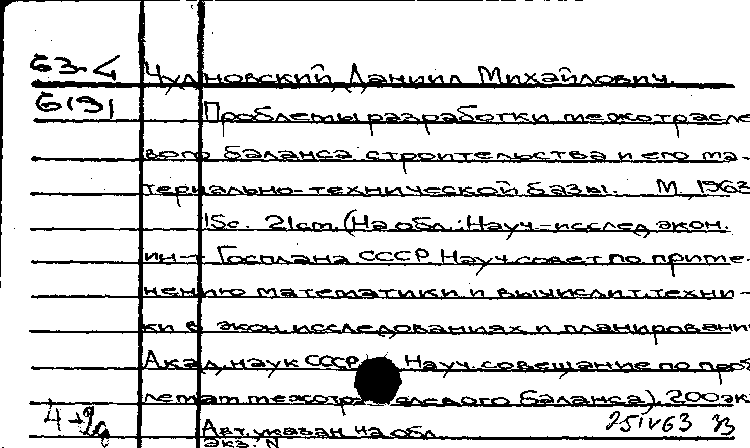 63-4 Чудновский, Даниил Михайлович.
6191 Проблемы разработки межотрасле
вого баланса строительства и его ма-
териально-технической базы. М, 1963
15с. 21cm. (На обл.: Науч-исслед экон.
ин-т Госплана СССР. Науч. совет по приме-
нению математики и вычислит. техни-
ки в экон. исследованиях и планировани
Акад. наук СССР. Науч. совещание по проб
лемам межотр слевого баланса). 200 эк
Авт. указан на обл 25 IV 63
экз. N